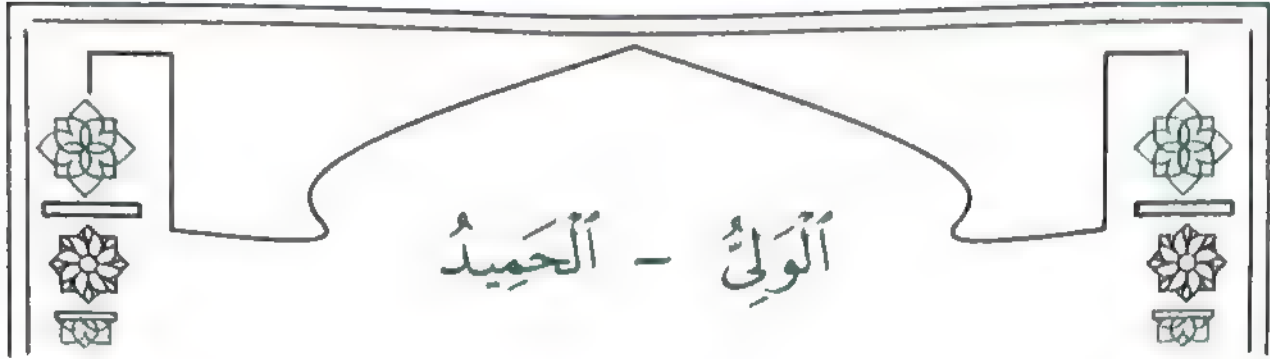 اَلْوَلِيُّ - اَلْحَمِيدُ